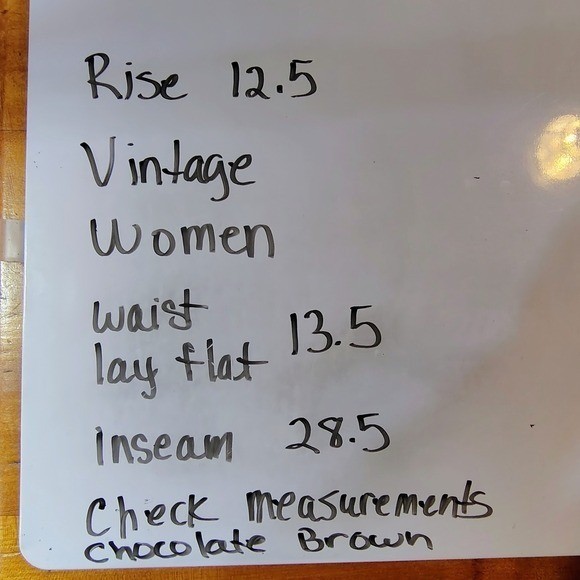 Rise 12.5
Vintage
Women
waist
lay flat 13.5
inseam 28.5
Check measurements
Chocolate Brown